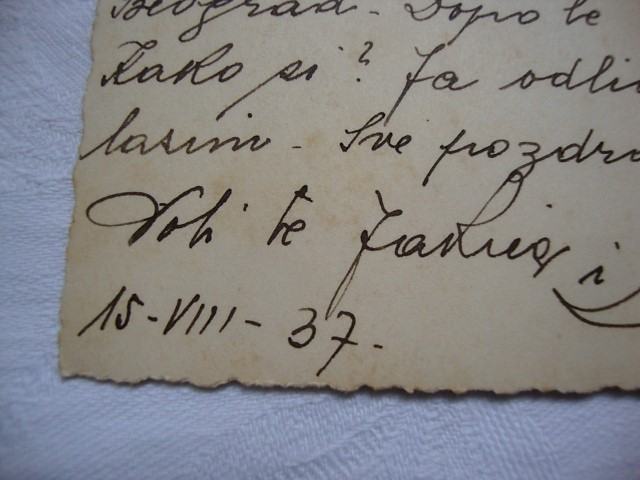 Beograd - Dopo le
Kako si? Ja odli
lasim - Sve pozdra
Voli te i
15-VIII-37.